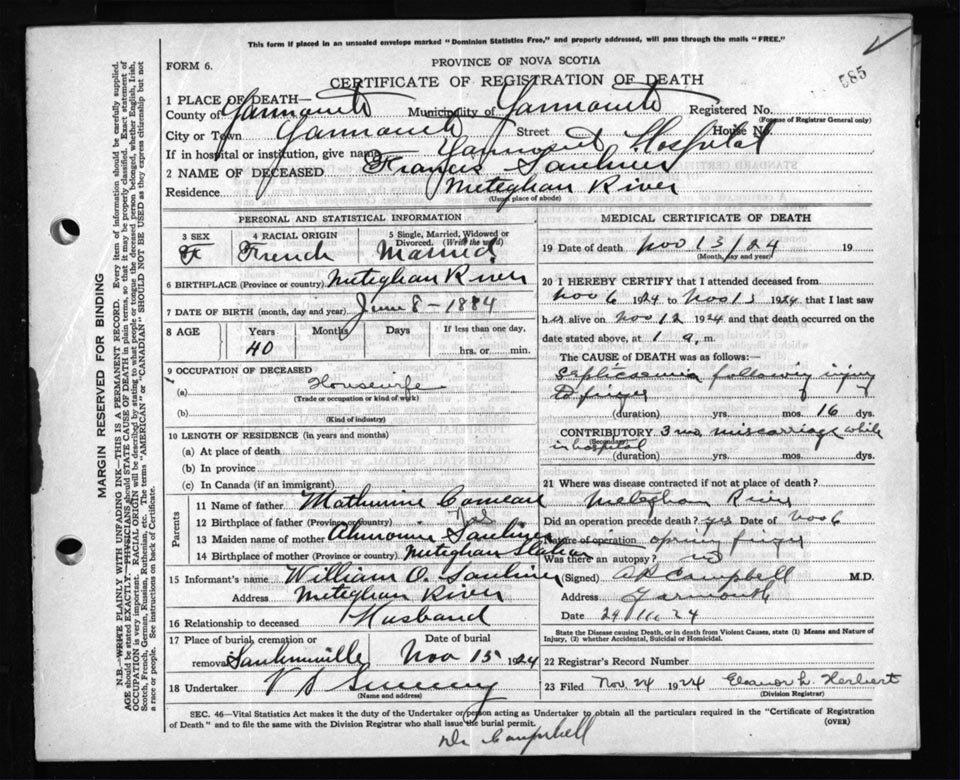 This form if placed in an unsealed envelope marked "Dominion Statistics Free," and properly addressed, will pass through the mails "FREE."
585
FORM 6.
PROVINCE OF NOVA SCOTIA
CERTIFICATE OF REGISTRATION OF DEATH
1 PLACE OF DEATH—
County of Yarmouth Municipality of Yarmouth Registered No.
(For use of Registrar General only)
City or Town Yarmouth Street House No.
If in hospital or institution, give name Yarmouth Hospital
2 NAME OF DECEASED Francis Saulnier
Residence Meteghan River
(Usual place of abode)
PERSONAL AND STATISTICAL INFORMATION
3 SEX 4 RACIAL ORIGIN 5 Single, Married, Widowed or Divorced. (Write the word)
F French Married
6 BIRTHPLACE (Province or country) Meteghan River
7 DATE OF BIRTH (month, day and year) June 8 - 1884
8 AGE Years Months Days If less than one day,
40 hrs. or min.
9 OCCUPATION OF DECEASED
(a) Housewife
(Trade or occupation or kind of work)
(b)
(Kind of industry)
10 LENGTH OF RESIDENCE (in years and months)
(a) At place of death
(b) In province
(c) In Canada (if an immigrant)
Parents
11 Name of father Mathurine Comeau
12 Birthplace of father (Province or Country) Do
13 Maiden name of mother Saulnier
14 Birthplace of mother (Province or country) Meteghan Station
15 Informant's name William O. Saulnier
Address Meteghan River
16 Relationship to deceased Husband
17 Place of burial, cremation or removal Saulnierville Date of burial Nov 15 1924
18 Undertaker V S Sweeny
(Name and address)
MEDICAL CERTIFICATE OF DEATH
19 Date of death Nov 13/24 19
(Month, day and year)
20 I HEREBY CERTIFY that I attended deceased from
Nov 6 1924 to Nov 13 1924 that I last saw
her alive on Nov 12 1924 and that death occurred on
date stated above, at 1 a. m.
The CAUSE of DEATH was as follows:
Septicaemia following injury
to finger
(duration) yrs. mos. 16 dys.
CONTRIBUTORY 3 mo miscarriage while
(Secondary)
in hospital
(duration) yrs. mos. dys.
21 Where was disease contracted if not at place of death?
Meteghan River
Did an operation precede death? yes Date of Nov 6
Nature of operation opening finger
Was there an autopsy? no
(Signed) A R Campbell M.D.
Address Yarmouth
Date 29/11/24
State the Disease causing Death, or in death from Violent Causes, state (1) Means and Nature of Injury, (2) whether Accidental, Suicidal or Homicidal.
22 Registrar's Record Number
23 Filed Nov. 24 1924 Eleanor L. Herbert
(Division Registrar)
SEC. 46—Vital Statistics Act makes it the duty of the Undertaker or person acting as Undertaker to obtain all the particulars required in the "Certificate of Registration
of Death" and to file the same with the Division Registrar who shall issue the burial permit. (OVER)
Dr Campbell
MARGIN RESERVED FOR BINDING
N.B.—WRITE PLAINLY WITH UNFADING INK—THIS IS A PERMANENT RECORD. Every item of information should be carefully supplied.
AGE should be stated EXACTLY. PHYSICIANS should STATE CAUSE OF DEATH in plain terms, so that it may be properly classified. Exact statement of
OCCUPATION is very important. RACIAL ORIGIN will be described by stating to what people or tongue the deceased person belonged, whether English, Irish,
Scotch, French, German, Russian, Ruthenian, etc. The terms "AMERICAN" or "CANADIAN" SHOULD NOT BE USED as they express citizenship but not
a race or people. See instructions on back of Certificate.